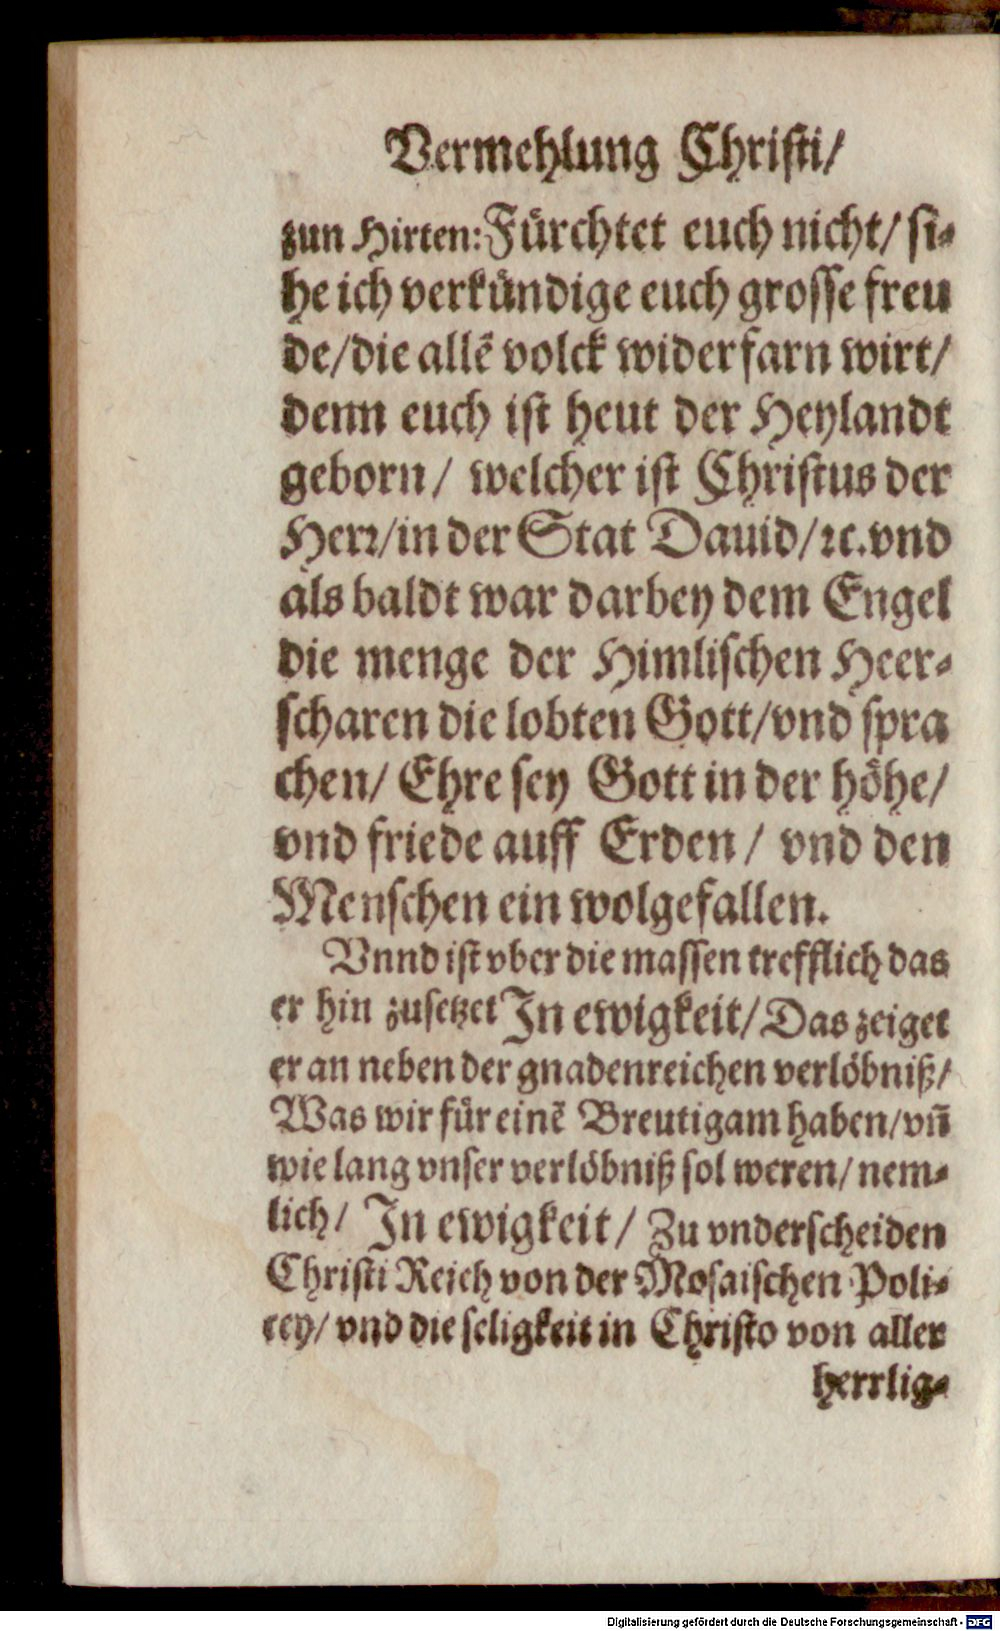 Vermehlung Christi/
zun Hirten: Fürchtet euch nicht/ si⸗
he ich verkündige euch grosse freu
de/die allẽ volck widerfarn wirt/
denn euch ist heut der Heylandt
geborn/ welcher ist Christus der
Herꝛ/in der Stat Dauid/ꝛc.vnd
als baldt war darbey dem Engel
die menge der Himlischen Heer⸗
scharen die lobten Gott/vnd spra
chen/ Ehre sey Gott in der höhe/
vnd friede auff Erden/ vnd den
Menschen ein wolgefallen.
Vnnd ist vber die massen trefflich das
er hin zusetzet In ewigkeit/ Das zeiget
er an neben der gnadenreichen verlöbniß/
Was wir für einẽ Breutigam haben/vñ
wie lang vnser verlöbniß sol weren/ nem⸗
lich/ In ewigkeit/ Zu vnderscheiden
Christi Reich von der Mosaischen Poli⸗
cey/ vnd die seligkeit in Christo von aller
herrlig⸗
Digitalisierung gefördert durch die Deutsche Forschungsgemeinschaft - DFG